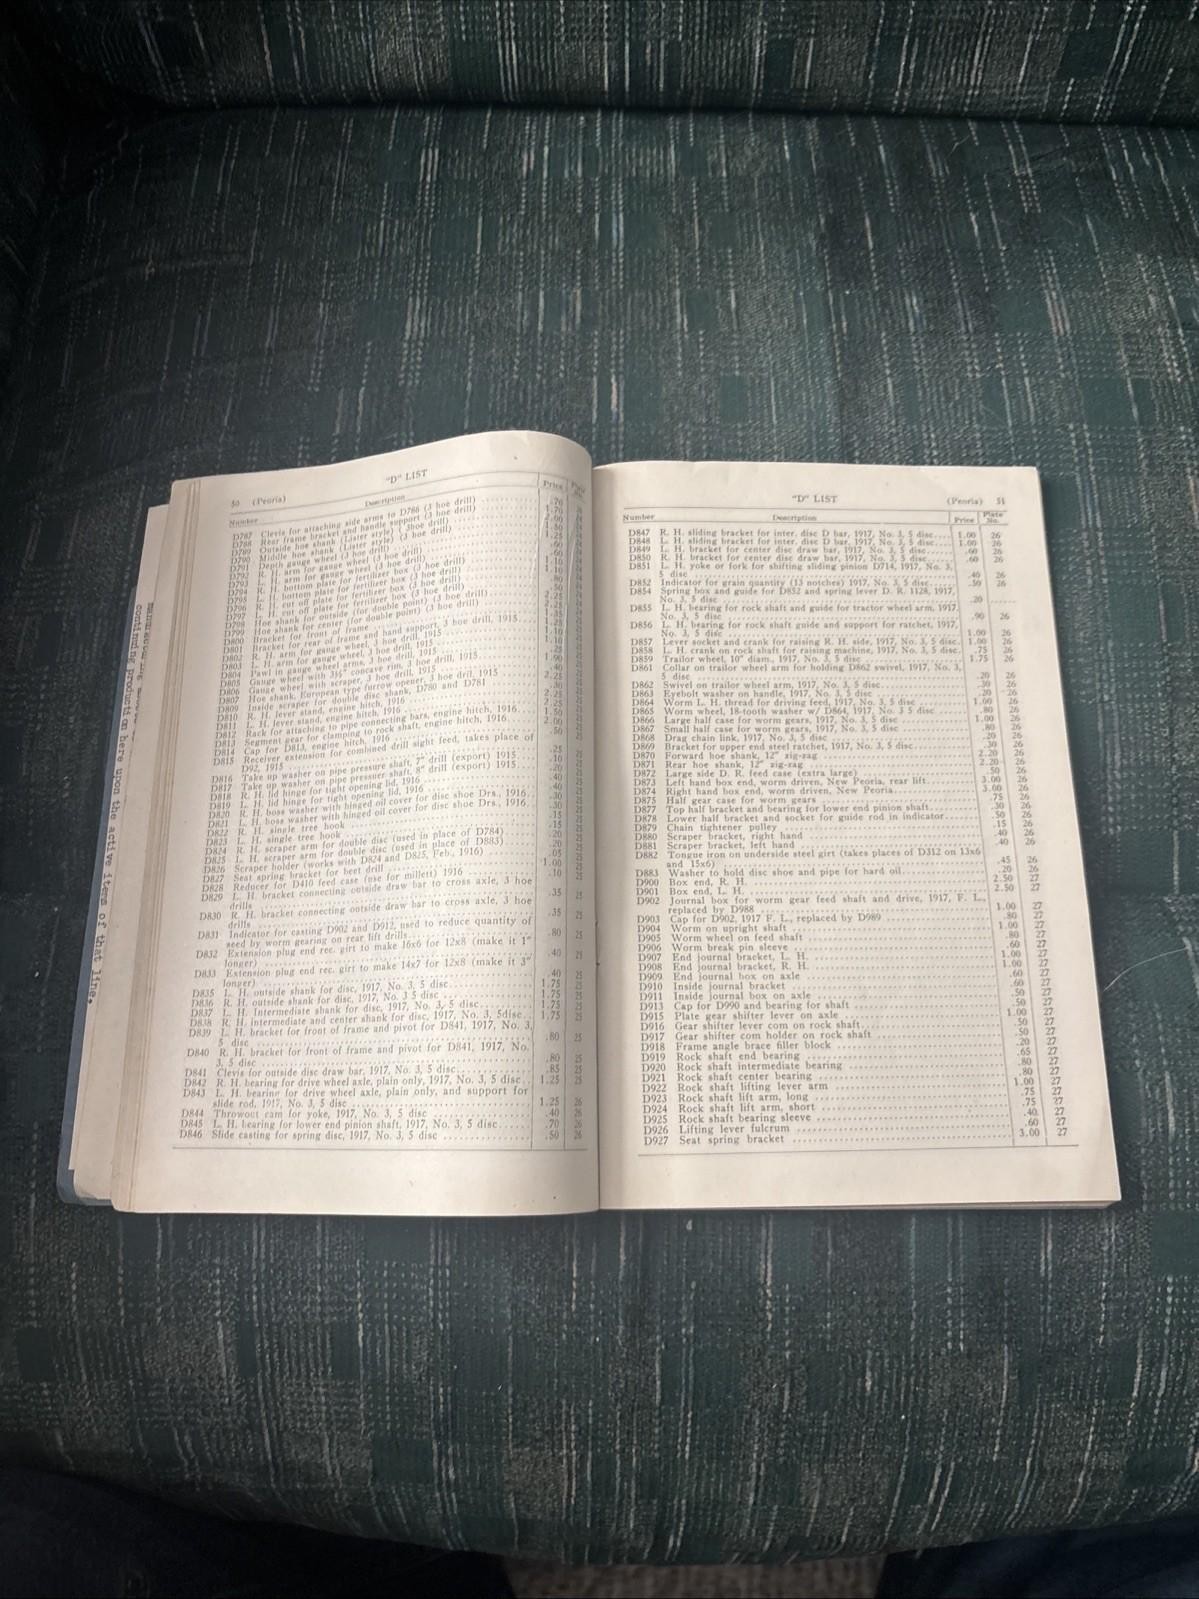 "D" LIST
50 (Peoria)
Number Description Price Plate No.
D787 Clevis for attaching side arms to D766 (3 hoe drill)
D788 Rear frame bracket and handle support (3 hoe drill)
D789 Outside hoe shank (Lister style) (3hoe drill)
D790 Middle hoe shank (Lister style) (3 hoe drill)
D791 Depth gauge wheel (3 hoe drill)
D792 R. H. arm for gauge wheel (3 hoe drill)
D793 L. H. arm for gauge wheel (3 hoe drill)
D794 R. H. bottom plate for fertilizer box (3 hoe drill)
D795 L. H. bottom plate for fertilizer box (3 hoe drill)
D796 R. H. cut off plate for fertilizer box (3 hoe drill)
D797 L. H. cut off plate for fertilizer box (3 hoe drill)
D798 Hoe shank for outside (for double point) (3 hoe drill)
D799 Hoe shank for center (for double point) (3 hoe drill)
D800 Bracket for front of frame
D801 Bracket for rear of frame and hand support, 3 hoe drill, 1915
D802 R. H. arm for gauge wheel, 3 hoe drill, 1915
D803 L. H. arm for gauge wheel, 3 hoe drill, 1915
D804 Pawl in gauge wheel arms, 3 hoe drill, 1915
D805 Gauge wheel with 3½" concave rim, 3 hoe drill, 1915
D806 Gauge wheel with scraper, 3 hoe drill, 1915
D807 Hoe shank, European type furrow opener, 3 hoe drill, 1915
D809 Inside scraper for double disc shank, D780 and D781
D810 R. H. lever stand, engine hitch, 1916
D811 L. H. lever stand, engine hitch, 1916
D812 Rack for attaching to pipe connecting bars, engine hitch, 1916
D813 Segment gear for clamping to rock shaft, engine hitch, 1916
D814 Cap for D813, engine hitch, 1916
D815 Receiver extension for combined drill sight feed, takes place of
D92, 1915 .25 25
D816 Take up washer on pipe pressure shaft, 7" drill (export) 1915 .10 25
D817 Take up washer on pipe pressure shaft, 8" drill (export) 1915 .20 25
D818 R. H. lid hinge for tight opening lid, 1916 .40 25
D819 L. H. lid hinge for tight opening lid, 1916 .40 25
D820 R. H. boss washer with hinged oil cover for disc shoe Drs., 1916 .30 25
D821 L. H. boss washer with hinged oil cover for disc shoe Drs., 1916 .30 25
D822 R. H. single tree hook .15 25
D823 L. H. single tree hook .15 25
D824 R. H. scraper arm for double disc (used in place of D784) .20 25
D825 L. H. scraper arm for double disc (used in place of D883) .20 25
D826 Scraper holder (works with D824 and D825, Feb., 1916) .05 25
D827 Seat spring bracket for beet drill 1.00 25
D828 Reducer for D410 feed case (use for millett) 1916 .10 25
D829 L. H. bracket connecting outside draw bar to cross axle, 3 hoe
drills .35 25
D830 R. H. bracket connecting outside draw bar to cross axle, 3 hoe
drills .35 25
D831 Indicator for casting D902 and D912, used to reduce quantity of
seed by worm gearing on rear lift drills .80 25
D832 Extension plug end rec. girt to make 16x6 for 12x8 (make it 1"
longer) .40 25
D833 Extension plug end rec. girt to make 14x7 for 12x8 (make it 3"
longer) .40 25
D835 L. H. outside shank for disc, 1917, No. 3, 5 disc 1.75 25
D836 R. H. outside shank for disc, 1917, No. 3 5 disc 1.75 25
D837 L. H. Intermediate shank for disc, 1917, No. 3, 5 disc 1.75 25
D838 R. H. intermediate and center shank for disc, 1917, No. 3, 5disc 1.75 25
D839 L. H. bracket for front of frame and pivot for D841, 1917, No. 3,
5 disc .80 25
D840 R. H. bracket for front of frame and pivot for D841, 1917, No.
3, 5 disc .80 25
D841 Clevis for outside disc draw bar, 1917, No. 3, 5 disc .85 25
D842 R. H. bearing for drive wheel axle, plain only, 1917, No. 3, 5 disc 1.25 25
D843 L. H. bearing for drive wheel axle, plain only, and support for
slide rod, 1917, No. 3, 5 disc 1.25 26
D844 Throwout cam for yoke, 1917, No. 3, 5 disc .40 26
D845 L. H. bearing for lower end pinion shaft, 1917, No. 3, 5 disc .70 26
D846 Slide casting for spring disc, 1917, No. 3, 5 disc .50 26
continuing production here upon the active items of that line.
"D" LIST
(Peoria) 51
Number Description Price Plate No.
D847 R. H. sliding bracket for inter. disc D bar, 1917, No. 3, 5 disc 1.00 26
D848 L. H. sliding bracket for inter. disc D bar, 1917, No. 3, 5 disc 1.00 26
D849 L. H. bracket for center disc draw bar, 1917, No. 3, 5 disc .60 26
D850 R. H. bracket for center disc draw bar, 1917, No. 3, 5 disc .60 26
D851 L. H. yoke or fork for shifting sliding pinion D714, 1917, No. 3,
5 disc .40 26
D852 Indicator for grain quantity (13 notches) 1917, No. 3, 5 disc .50 26
D854 Spring box and guide for D852 and spring lever D. R. 1128, 1917,
No. 3, 5 disc .20
D855 L. H. bearing for rock shaft and guide for tractor wheel arm, 1917,
No. 3, 5 disc .90 26
D856 L. H. bearing for rock shaft guide and support for ratchet, 1917,
No. 3, 5 disc 1.00 26
D857 Lever socket and crank for raising R. H. side, 1917, No. 3, 5 disc 1.00 26
D858 L. H. crank on rock shaft for raising machine, 1917, No. 3, 5 disc .75 26
D859 Trailor wheel, 10" diam., 1917, No. 3, 5 disc 1.75 26
D861 Collar on trailor wheel arm for holding D862 swivel, 1917, No. 3,
5 disc .20 26
D862 Swivel on trailor wheel arm, 1917, No. 3, 5 disc .30 26
D863 Eyebolt washer on handle, 1917, No. 3, 5 disc .20 26
D864 Worm L. H. thread for driving feed, 1917, No. 3, 5 disc 1.00 26
D865 Worm wheel, 18-tooth washer w/ D864, 1917, No. 3 5 disc .80 26
D866 Large half case for worm gears, 1917, No. 3, 5 disc 1.00 26
D867 Small half case for worm gears, 1917, No. 3, 5 disc .80 26
D868 Drag chain link, 1917, No. 3, 5 disc .20 26
D869 Bracket for upper end steel ratchet, 1917, No. 3, 5 disc .30 26
D870 Forward hoe shank, 12" zig-zag 2.20 26
D871 Rear hoe shank, 12" zig-zag 2.20 26
D872 Large side D. R. feed case (extra large) .50 26
D873 Left hand box end, worm driven, New Peoria, rear lift 3.00 26
D874 Right hand box end, worm driven, New Peoria 3.00 26
D875 Half gear case for worm gears .75 26
D877 Top half bracket and bearing for lower end pinion shaft .30 26
D878 Lower half bracket and socket for guide rod in indicator .50 26
D879 Chain tightener pulley .15 26
D880 Scraper bracket, right hand .40 26
D881 Scraper bracket, left hand .40 26
D882 Tongue iron on underside steel girt (takes places of D312 on 13x6
and 15x6) .45 26
D883 Washer to hold disc shoe and pipe for hard oil .20 26
D900 Box end, R. H. 2.50 27
D901 Box end, L. H. 2.50 27
D902 Journal box for worm gear feed shaft and drive, 1917, F. L.,
replaced by D988 1.00 27
D903 Cap for D902, 1917 F. L., replaced by D989 .80 27
D904 Worm on upright shaft 1.00 27
D905 Worm wheel on feed shaft .80 27
D906 Worm break pin sleeve .60 27
D907 End journal bracket, L. H. 1.00 27
D908 End journal bracket, R. H. 1.00 27
D909 End journal box on axle .60 27
D910 Inside journal bracket .60 27
D911 Inside journal box on axle .50 27
D913 Cap for D990 and bearing for shaft .50 27
D915 Plate gear shifter lever on axle 1.00 27
D916 Gear shifter lever com on rock shaft .50 27
D917 Gear shifter com holder on rock shaft .50 27
D918 Frame angle brace filler block .20 27
D919 Rock shaft end bearing .65 27
D920 Rock shaft intermediate bearing .80 27
D921 Rock shaft center bearing .80 27
D922 Rock shaft lifting lever arm 1.00 27
D923 Rock shaft lift arm, long .75 27
D924 Rock shaft lift arm, short .75 27
D925 Rock shaft bearing sleeve .40 27
D926 Lifting lever fulcrum .60 27
D927 Seat spring bracket 3.00 27